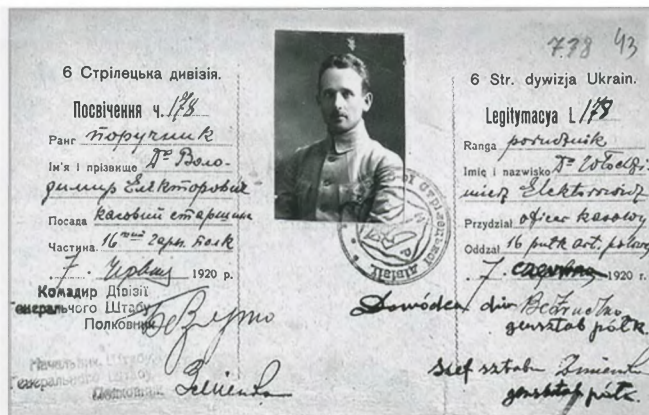 738 43
6 Стрілецька дивізія.
Посвічення ч. 178
Ранг поручник
Ім'я і прізвище Др Воло-
димир Електорович
Посада касовий старшин
Частина 16тий гарм. полк
7. Червня 1920 р.
Командир Дівізії
Генерального Штабу
Полковник
Начальник Штабу
Генерального Штабу
Полковник
6 Str. dywizja Ukrain.
Legitymacya L 178
Ranga porucznik
Imię i nazwisko Dr Włodzi-
mierz Elektorowicz
Przydział oficer kasowy
Oddział 16 pułk art. polowej
7. czerwca 1920 r.
Dowódca div Bezruczko
gensztab połk.
szef sztabu
gensztab połk.